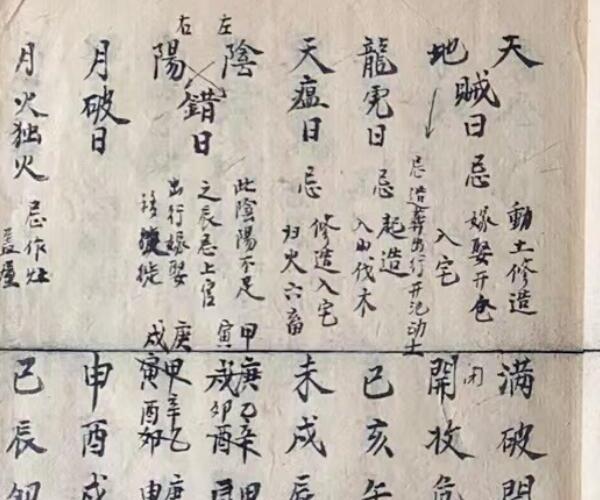 天地賊日 忌 動土修造 嫁娶開倉 入宅
忌造葬出行开池动土
龍虎日 忌 起造 入山伐木
天瘟日 忌 修造入宅 归火六畜
左 右
陰陽錯日 此陰陽不足 之辰忌上官 出行嫁娶 移徙
月破日
月火独火 忌作灶 盖屋
满破開
闭
開收危
巳亥午
未戌辰
甲寅 庚戌 乙卯 辛酉
庚戌 甲寅 辛酉 乙卯
申酉戌
巳辰卯